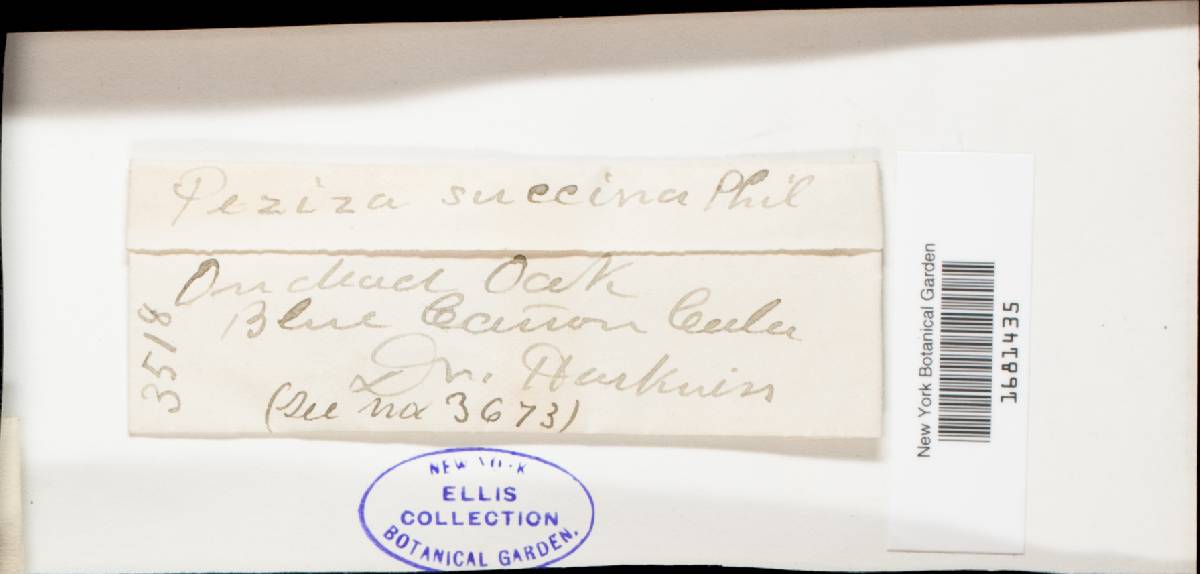 Peziza succina Phil
On dead Oak
Blue Cañon Cala
Dr. Harkness
(see no 3673)
3518
NEW YORK
ELLIS
COLLECTION
BOTANICAL GARDEN.
New York Botanical Garden
1681435